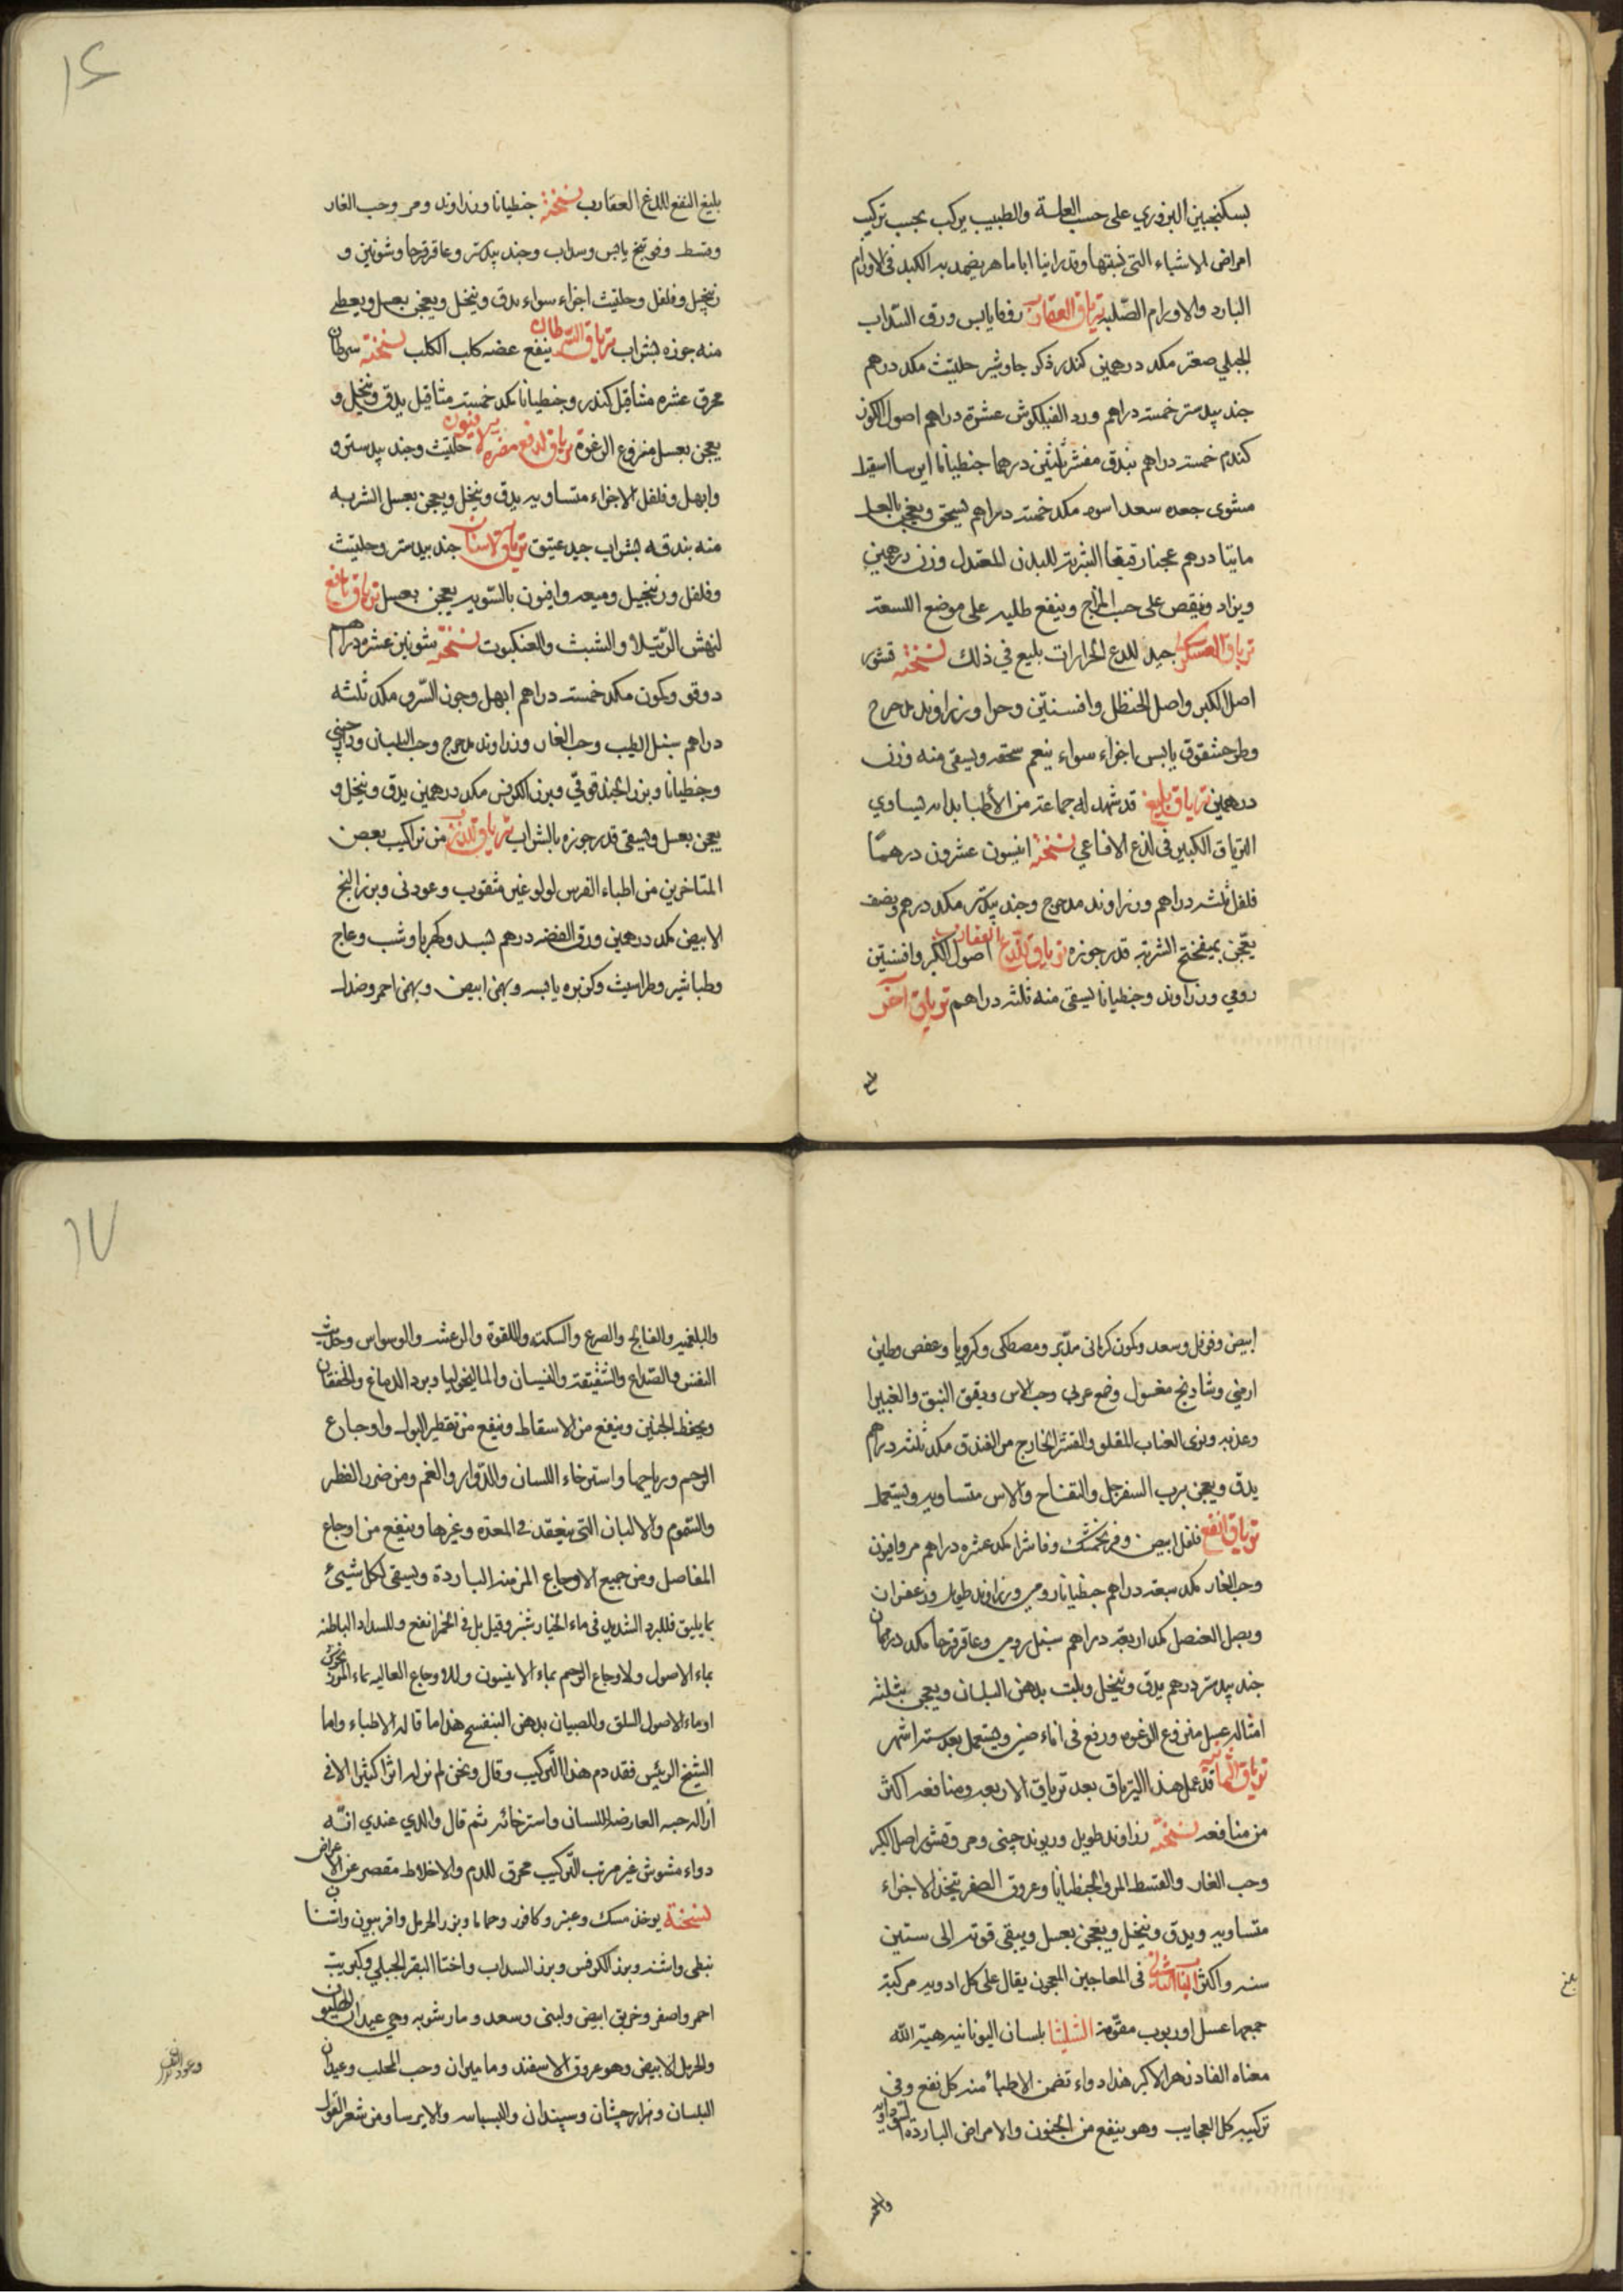 بسكنجبين البزوري على حسب العلة والطبيب يركب بحسب تركيب
امراض الاشياء التي نسبتها وقد راينا اباماهر يضمد به الكبد في الاورام
البارد والاورام الصّلبة ترياق العقارب زوفا يابس ورق السّداب
الجبلي صعتر مكد درهمين كندر ذكر جاوشير حلتيث مكد درهم
جند بيدستر خمسة دراهم ورد الفيلكوش عشرة دراهم اصول الكور
كندم خمسة دراهم بندق مقشر ثلثين درهما جنطيانا ايرسا اسقيل
مشوى جعده سعد اسود مكد خمسة دراهم يسحق ويعجن بالعسل
مايتا درهم عجنا رقيقا الشربة للبدن المعتدل وزن درهمين
ويزاد وينقص على حسب المزاج وينفع طليه على موضع اللسعة
ترياق العسكر جيد للدغ الجرارات بليغ في ذلك نسخته قشور
اصل الكبر واصل الحنظل وافسنتين وزراوند مدحرج
وطرحشقوق يابس اجزاء سواء ينعم سحقه ويسقى منه وزن
درهمين ترياق بليغ قد شهد له جماعة من الأطبا بانه يساوي
الترياق الكبير في لدغ الافاعي نسخته انيسون عشرون درهمًا
فلفل ثلثه دراهم وزراوند مدحرج وجند بيدستر مكد درهم ونصف
يعجن بميفختج الشربة قدر جوزه ترياق للدغ العقارب اصول الكبر وافسنتين
رومي وزراوند وجنطيانا يسقى منه ثلثه دراهم ترياق آخر
١٦
بليغ النفع للدغ العقارب نسخته جنطيانا وزراوند ومر وحب الغار
وقسط وفوتنج يابس وسداب وجند بيدستر وعاقرقرحا وشونيز و
زنجبيل وفلفل وحلتيث اجزاء سواء يدق وينخل ويعجن بعسل ويعطى
منه جوزه بشراب ترياق السرطان ينفع عضه كلب الكلب نسخته سرطان
محرق عشره مثاقيل كندر وجنطيانا مكد خمسة مثاقيل يدق وينخل و
يعجن بعسل منزوع الرغوة ترياق لدفع مضره الافيون حلتيث وجند بيدستر و
وابهل وفلفل الاجزاء متساويه يدق وينخل ويعجن بعسل الشربه
منه بندقه بشراب جيد عتيق ترياق الاسنان جند بيدستر وحلتيث
وفلفل وزنجبيل وميعه وافيون بالسّويه يعجن بعسل ترياق نافع
لنهش الرتيلا والشبث والعنكبوت نسخته شونيز عشره دراهم
دوقو وكمون مكد خمسة دراهم ابهل وجوز السّرو مكد ثلثه
دراهم سنبل الطيب وحب الغار وزراوند مدحرج وحب البلسان ودارچيني
وجنطيانا وبزر الحندقوقي وبزر الكرفس مكد درهمين يدق وينخل و
يعجن بعسل ويسقى قدر جوزه بالشراب ترياق الذرب من تراكيب بعض
المتاخرين من اطباء الفرس لولو غير مثقوب وعود ني وبزر البنج
الابيض مكد درهمين ورق الفضه درهم بسد وكهربا وشب وعاج
وطباشير وطراسيث وكزبره يابسه وبهمن ابيض وبهمن احمر وصندل
ابيض وفوفل وسعد وكمون كرماني مدّبر ومصطكى وكرويا وعفص وطين
ارمني وشادنج مغسول وصمغ عربي وحب الاس ودقيق النبق والغبيرا
وعذبه ونوى العناب المقلو والقشر الخارج من الفندق مكد ثلثه دراهم
يدق ويعجن برب السفرجل والتفاح والاس متساويه ويستعمل
ترياق انفع فلفل ابيض وفرنجمشك وفاشرا مكد عشره دراهم مر وافيون
وحب الغار مكد سبعة دراهم جنطيانا رومي وزراوند طويل وزعفران
وبصل العنصل مكد اربعة دراهم سنبل رومي وعاقرقرحا مكد درهمان
جند بيدستر درهم يدق وينخل ويلت بدهن البلسان ويعجن بثلثه
امثاله عسل منزوع الرغوه ورفع في اناء صيني ويستعمل بعد ستة اشهر
ترياق الثمانيه قد عمل هذا الترياق بعد ترياق الاربعه ومنافعه اكثر
من منافعه نسخته زراوند طويل وريوند چيني ومر وقشور اصل الكبر
وحب الغار والقسط المر والجنطيانا وعروق الصفر يتخذ الاجزاء
متساويه ويدق وينخل ويعجن بعسل ويبقى قوته الى ستين
سنه واكثر الباب الثاني في المعاجين المعجون يقال على كل ادويه مركبة
جمعها عسل او ربوب مقوّمة الشليثا بلسان اليونانيه هبة الله
معناه الفادزهر الاكبر هذا دواء تضمن الاطباء منه كل نفع وفي
تركيبه كل العجايب وهو ينفع من الجنون والامراض البارده السوداويه
١٧
والبلغميه والفالج والصرع والسكته واللقوة والرعشه والوسواس وحديث
النفس والصّداع والشقيقة والنسيان والماليخوليا وبرد الدماغ والخفقان
ويحفظ الجنين وينفع من الاسقاط وينفع من تقطير البول واوجاع
الرحم ورياحها واسترخاء اللسان والدّوار والغم ومن ضرر الفطر
والسّموم والالبان التي ينعقد في المعدة وغيرها وينفع من اوجاع
المفاصل ومن جميع الاوجاع المزمنه الباردة ويسقى لكل شيئ
بما يليق فللبرد الشديد في ماء الخيارشنبر وقيل بل في الخمر انفع وللسداد الباطنه
بماء الاصول ولاوجاع الرحم بماء الانيسون وللاوجاع العاليه بماء المرزنجوش
اوماء الاصول السلق وللصبيان بدهن البنفسج هذا ما قاله الاطباء واما
الشيخ الرئيس فقد ذم هذا التركيب وقال ونحن لم نر له اثرا كثيرا الا في
ازاله حبسه العارضه للسان واسترخائه ثم قال والذي عندي انّه
دواء مشوش غير مرتب التّركيب محرق للدم والاخلاط مقصر عن الاعراض
نسخة يوخذ مسك وعنبر وكافور وحماما وبزر الحرمل وافربيون واشنان
نبطي واشنه وبزر الكرفس وبزر السداب واختاا البقر الجبلي وكبريت
احمر واصفر وخربق ابيض ولبنى وسعد ومارشوبه وهي عيدان الهليون
والحرمل الابيض وهو عروق الاسفند وماميران وحب المحلب وعيدان
البلسان وهزارجشان وسپندان والبسباسه والايرسا ومن شعر الغول